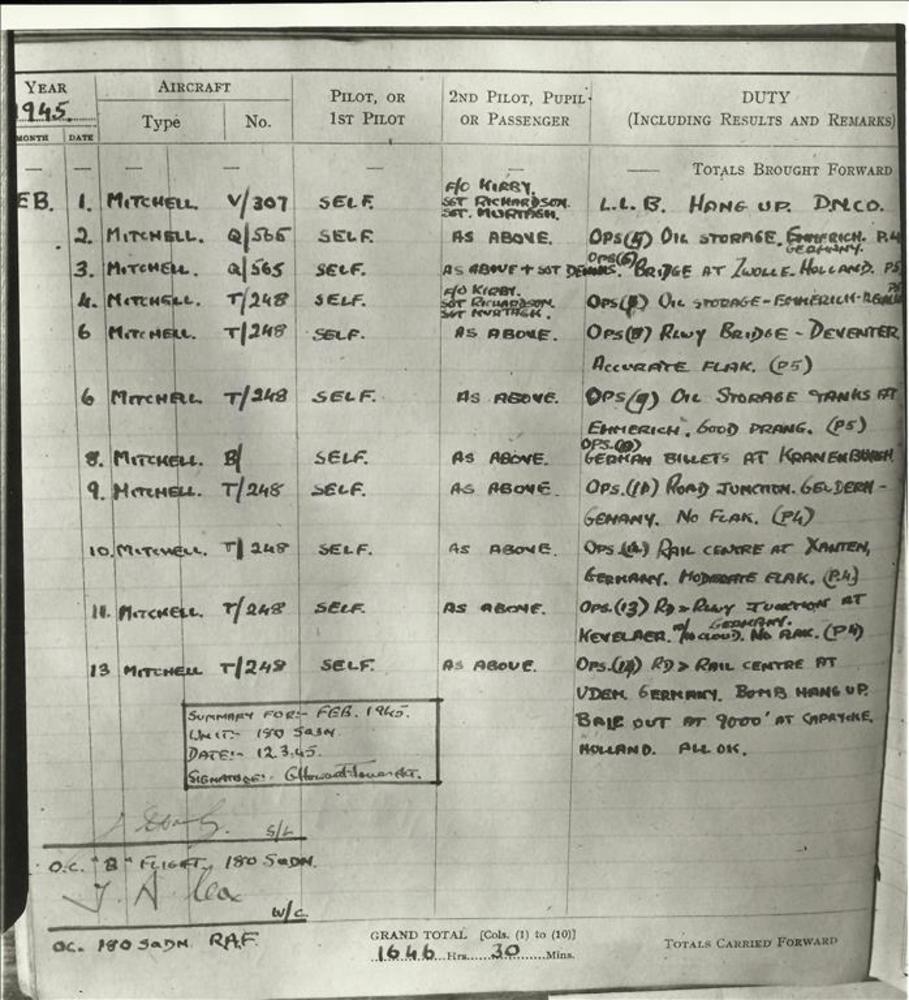 YEAR AIRCRAFT PILOT, OR 2ND PILOT, PUPIL DUTY
1945. Type No. 1ST PILOT OR PASSENGER (INCLUDING RESULTS AND REMARKS)
MONTH DATE
— — — — — — TOTALS BROUGHT FORWARD
F/O KIRBY.
EB. 1. MITCHELL. V/307 SELF. SGT RICHARDSON. L.L.B. HANG UP. D.N.C.O.
SGT. MURTAGH.
2. MITCHELL. Q/565 SELF. AS ABOVE. OPS(5) OIL STORAGE. EMMERICH. P.4
GERMANY.
OPS(6)
3. MITCHELL. Q/565 SELF. AS ABOVE + SGT BRIDGE AT ZWOLLE. HOLLAND. P5
F/O KIRBY.
4. MITCHELL. T/248 SELF. SGT RICHARDSON OIL STORAGE - EMMERICH -
SGT MURTAGH.
6 MITCHELL T/248 SELF. AS ABOVE. OPS(8) RLWY BRIDGE - DEVENTER
ACCURATE FLAK. (P5)
6 MITCHELL T/248 SELF. AS ABOVE. OPS(9) OIL STORAGE TANKS AT
EMMERICH. GOOD PRANG. (P5)
OPS.(10)
8. MITCHELL. B/ SELF. AS ABOVE. GERMAN BILLETS AT KRANENBURGH
9. MITCHELL. T/248 SELF. AS ABOVE. OPS.(11) ROAD JUNCTION. GELDERN -
GEMANY. NO FLAK. (P4)
10. MITCHELL. T/248 SELF. AS ABOVE. OPS.(12) RAIL CENTRE AT XANTEN,
GERMANY. MODERATE FLAK. (P.4)
11. MITCHELL. T/248 SELF. AS ABOVE. OPS.(13) RD > RLWY JUNCTION AT
GERMANY.
KEVELAER. CLOUD. NO FLAK. (P4)
13 MITCHELL T/248 SELF. AS ABOVE. OPS.(14) RD > RAIL CENTRE AT
UDEM. GERMANY. BOMB HANG UP.
BALE OUT AT 9000' AT
HOLLAND. ALL OK.
SUMMARY FOR:- FEB. 1945.
UNIT:- 180 SQDN.
DATE:- 12.3.45.
SIGNATURE:-
S/L
O.C. "B" FLIGHT, 180 SQDN.
W/C.
OC. 180 SQDN. RAF.
GRAND TOTAL [Cols. (1) to (10)] TOTALS CARRIED FORWARD
1646 Hrs. 30 Mins.